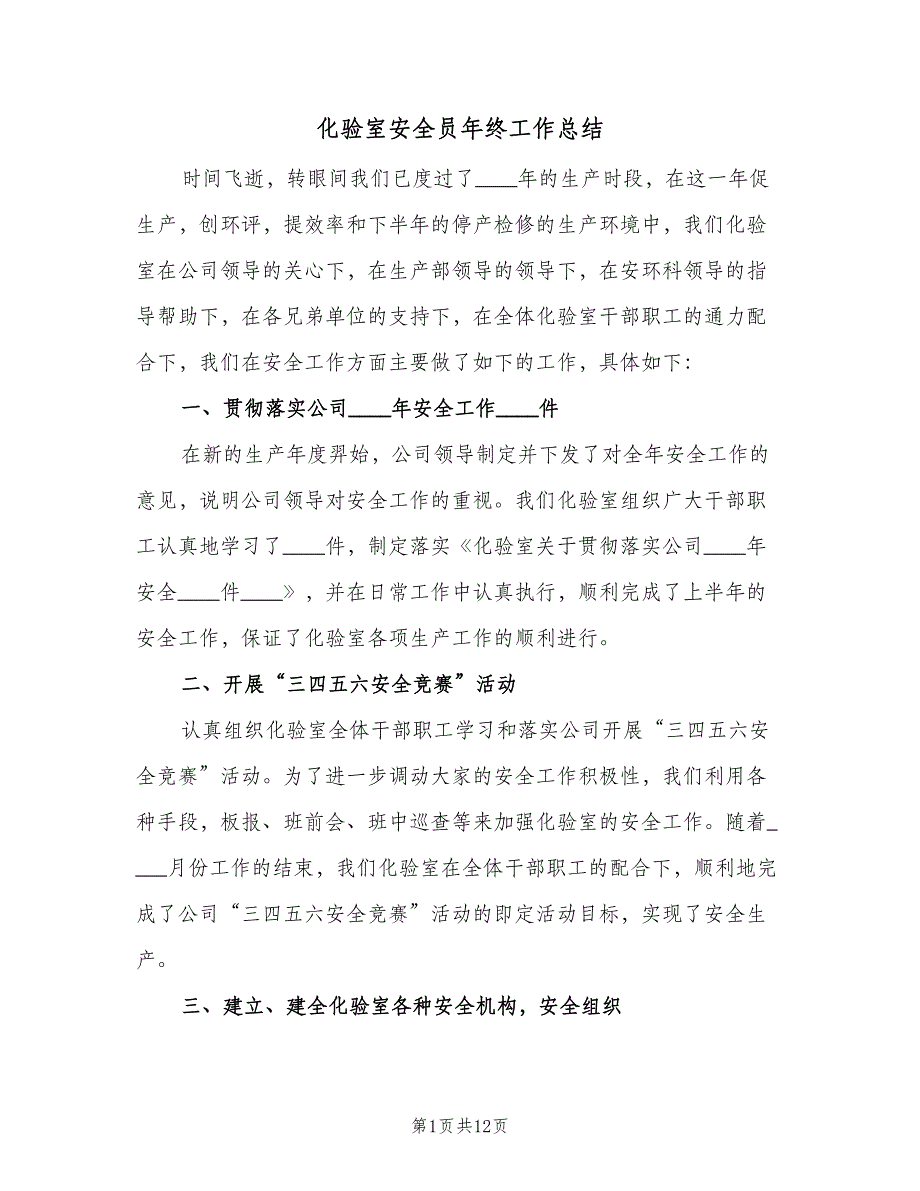 化验室安全员年终工作总结
时间飞逝，转眼间我们已度过了____年的生产时段，在这一年促
生产，创环评，提效率和下半年的停产检修的生产环境中，我们化验
室在公司领导的关心下，在生产部领导的领导下，在安环科领导的指
导帮助下，在各兄弟单位的支持下，在全体化验室干部职工的通力配
合下，我们在安全工作方面主要做了如下的工作，具体如下：
一、贯彻落实公司____年安全工作____件
在新的生产年度羿始，公司领导制定并下发了对全年安全工作的
意见，说明公司领导对安全工作的重视。我们化验室组织广大干部职
工认真地学习了____件，制定落实《化验室关于贯彻落实公司____年
安全____件____》，并在日常工作中认真执行，顺利完成了上半年的
安全工作，保证了化验室各项生产工作的顺利进行。
二、开展“三四五六安全竞赛”活动
认真组织化验室全体干部职工学习和落实公司开展“三四五六安
全竞赛”活动。为了进一步调动大家的安全工作积极性，我们利用各
种手段，板报、班前会、班中巡查等来加强化验室的安全工作。随着_
___月份工作的结束，我们化验室在全体干部职工的配合下，顺利地完
成了公司“三四五六安全竞赛”活动的即定活动目标，实现了安全生
产。
三、建立、建全化验室各种安全机构，安全组织
第1页共12页